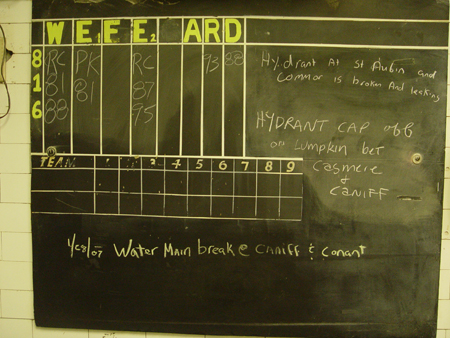 W E F₁ E₂ A R D
8 RC PK RC 93 88
1 81 81 87
6 88 95
TEAM 1 2 3 4 5 6 7 8 9
Hydrant At St Aubin and
Common is broken And leaking
HYDRANT CAP off
on Lumpkin bet
Casmere
&
CANIFF
1/08/07 Water Main break @ Canniff & Conant